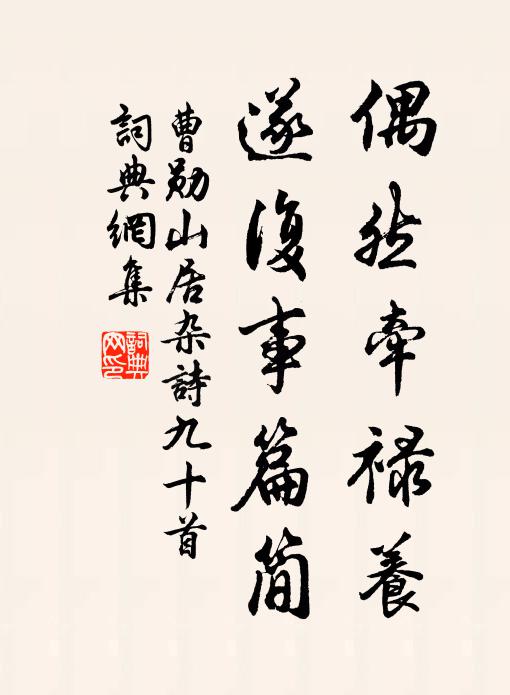 偶然牽禄養
遂復事篇简
曹勋山居杂詩九十首
詞典網集
詞典網印